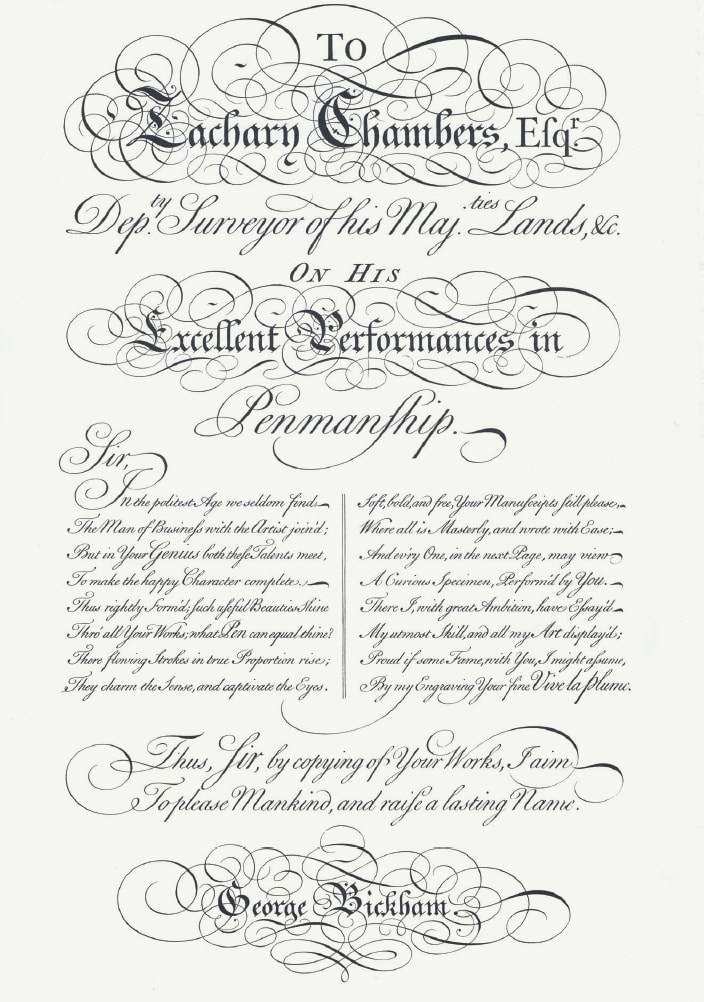 To
Zachary Chambers, Eſqr.
Dep.ty Surveyor of his Maj.ties Lands, &c.
On His
Excellent Performances in
Penmanſhip.
Sir,
In the politest Age we seldom find
The Man of Buſineſs with the Artist join'd;
But in Your Genius both theſe Talents meet,
To make the happy Character complete.
Thus rightly Form'd; ſuch uſeful Beauties Shine
Thro' all Your Works; what Pen can equal thine?
There flowing Strokes in true Proportion rise;
They charm the Sense, and captivate the Eyes.
Soft, bold, and free, Your Manuſcripts ſtill please,
Where all is Masterly, and wrote with Ease;
And ev'ry One, in the next Page, may view
A Curious Specimen, Perform'd by You.
There I, with great Ambition, have Eſſay'd
My utmost Skill, and all my Art display'd;
Proud if some Fame, with You, I might aſsume,
By my Engraving Your fine Vive la Plume.
Thus, Sir, by copying of Your Works, I aim
To please Mankind, and raiſe a lasting Name.
George Bickham.